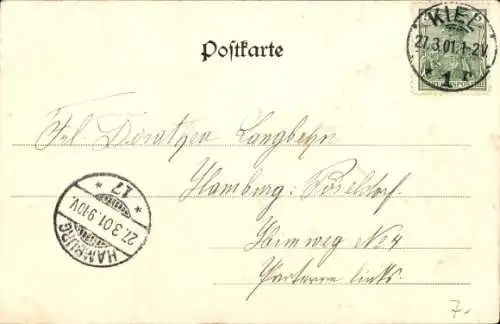 Postkarte
KIEL
27.3.01.1-2V.
* 1 f
Frl. Dorathea Langbehn
Hamburg: Pöseldorf.
Himweg No 4
Parterre links.
HAMBURG
27.3.01.9-10V.
* 17 *
7.-